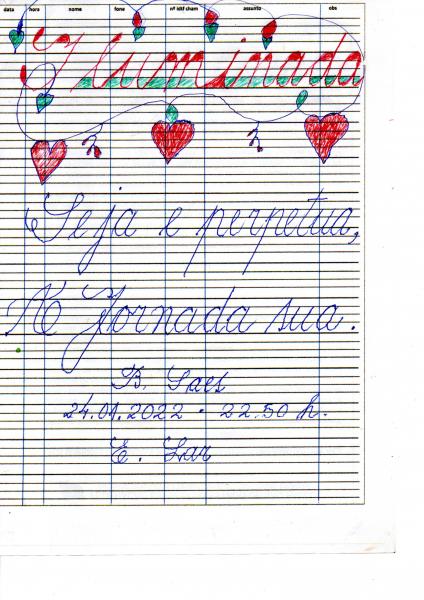 data hora nome fone nº idtf cham assunto obs
Iluminada
Seja e perpetua,
K Jornada sua.
B. Saes
24.01.2022 · 22.50 h.
E. Lar